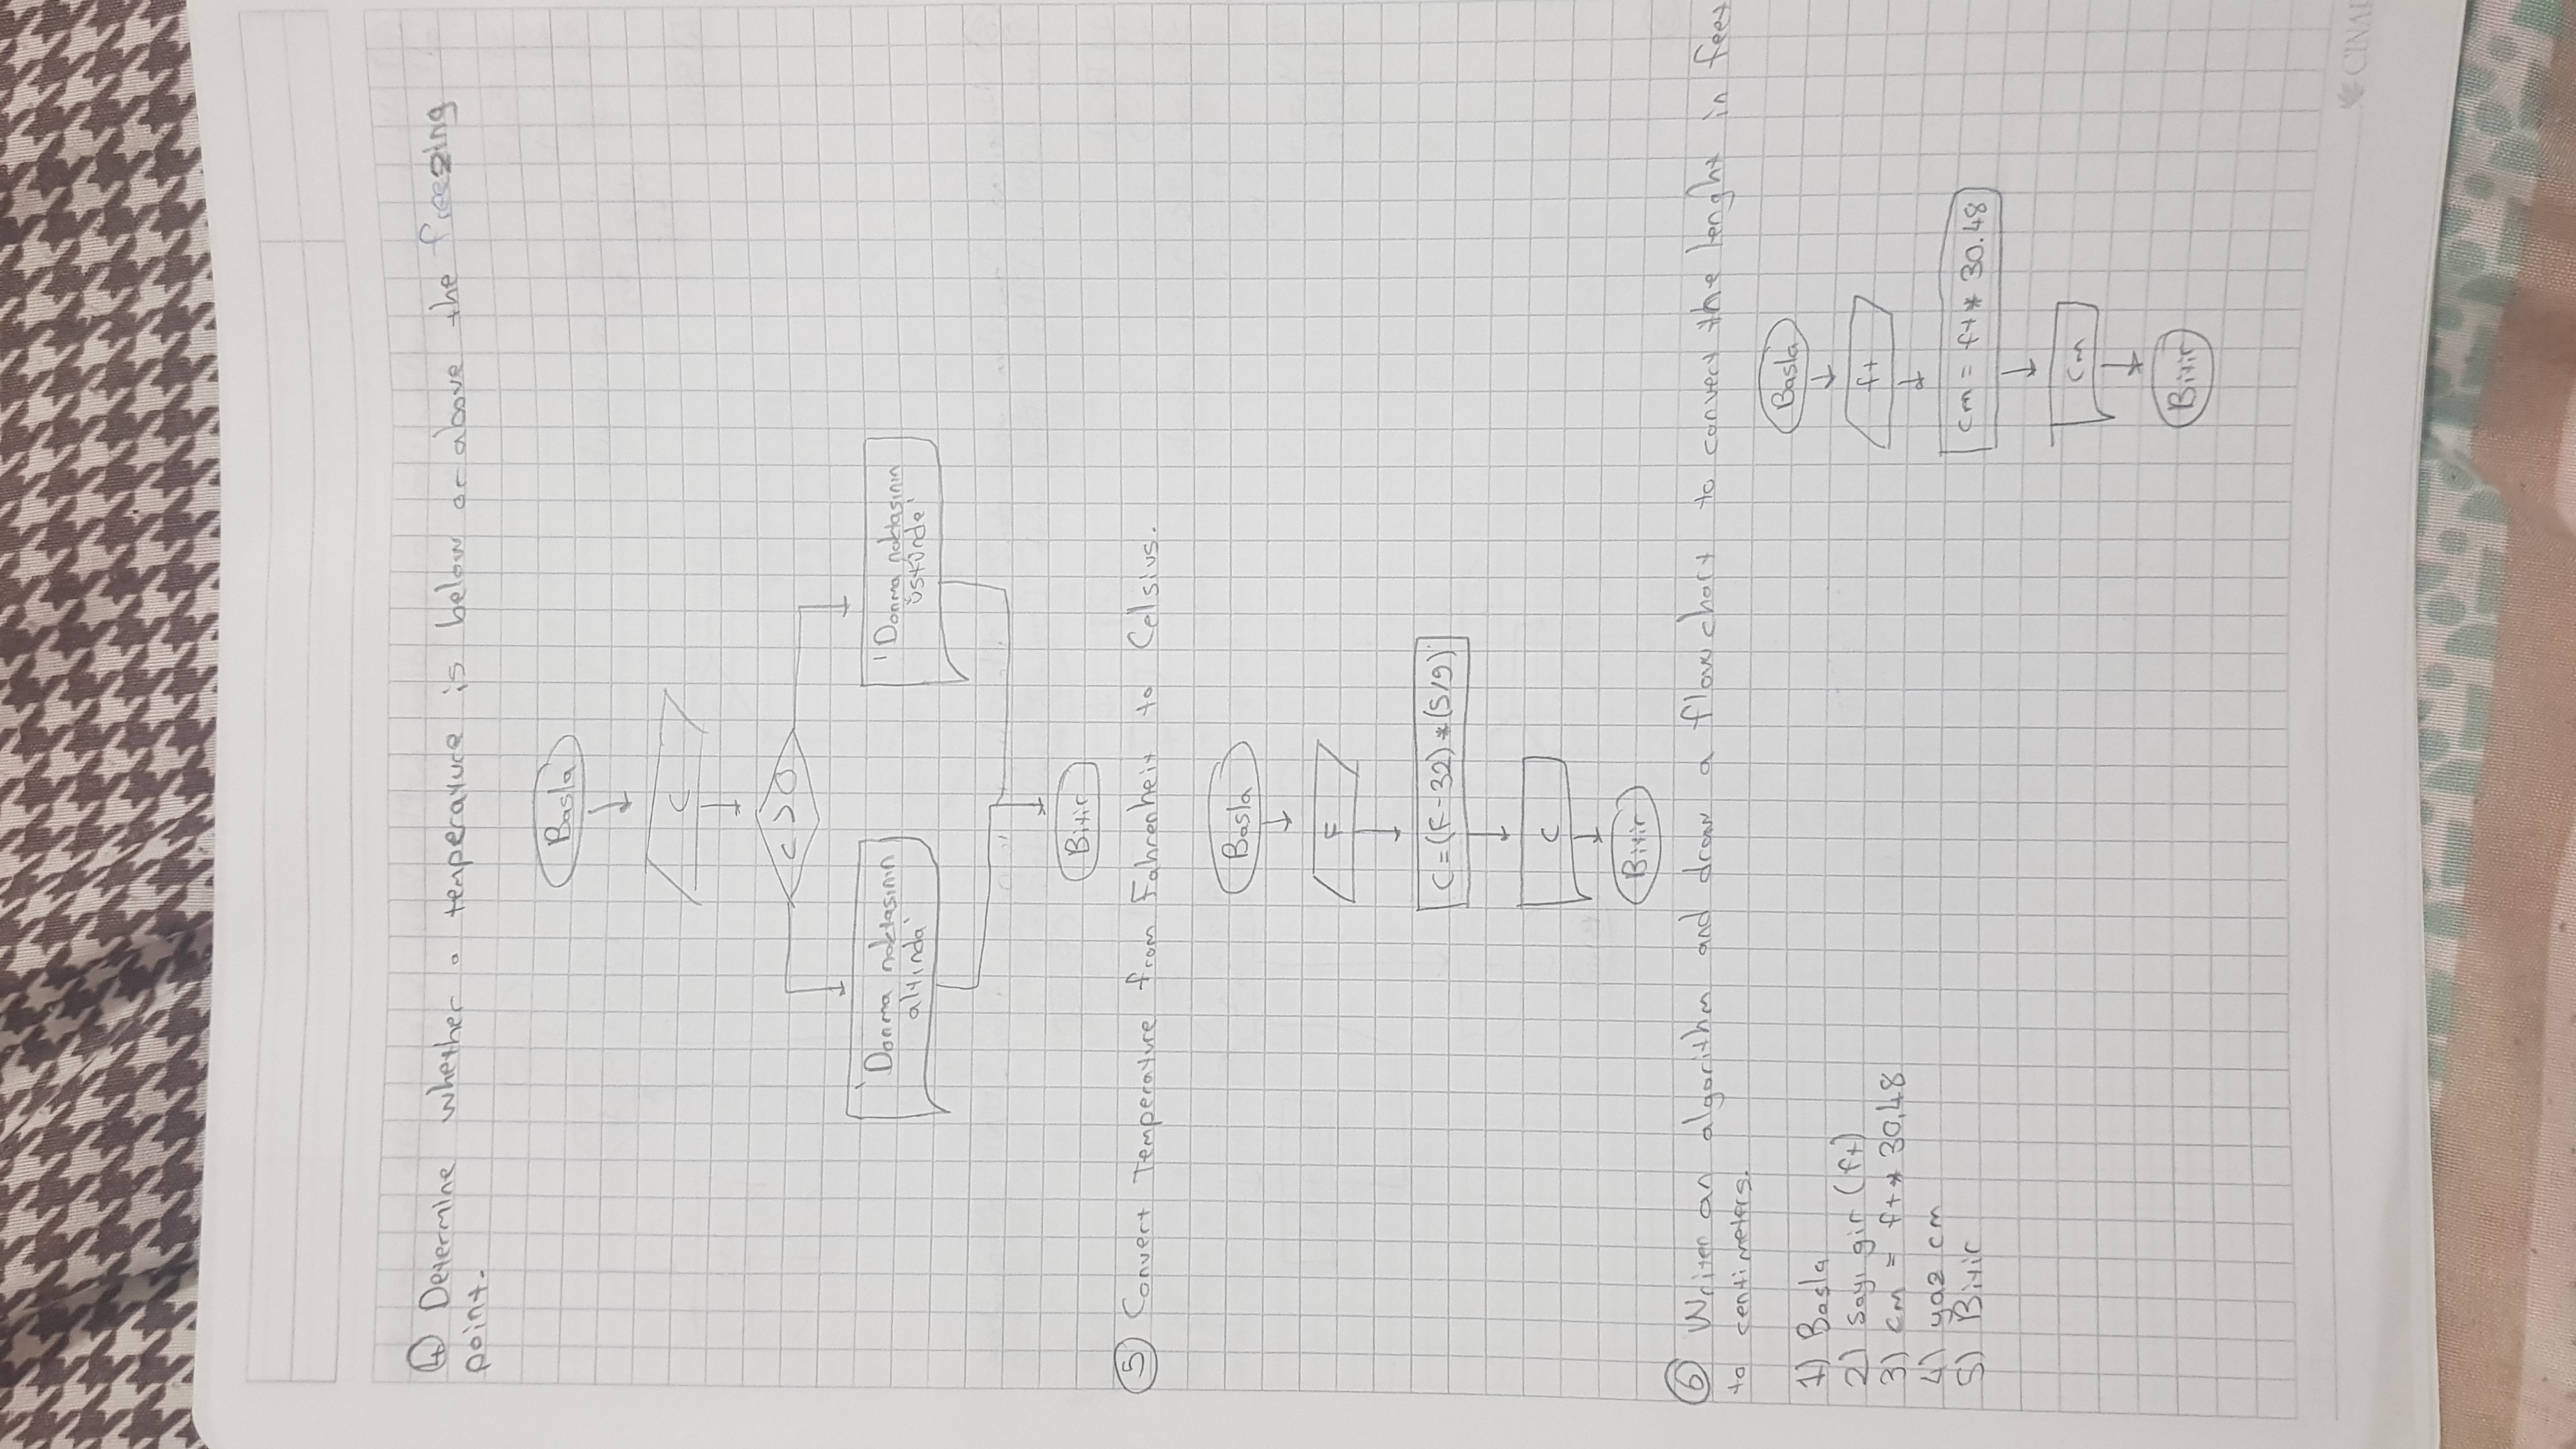 4 Determine whether a temperature is below or above the freezing
point.
Basla
C
C > 0
'Donma noktasının
altında'
'Donma noktasının
üstünde'
Bitir
5 Convert Temperature from Fahrenheit to Celsius.
Basla
F
C = (F - 32) * (5/9)
C
Bitir
6 Writen an algorithm and draw a flow chart to convert the lenght in feet
to centimeters.
1) Basla
2) Sayı gir (ft)
3) cm = ft * 30,48
4) yaz cm
5) Bitir
Basla
ft
cm = ft * 30.48
cm
Bitir